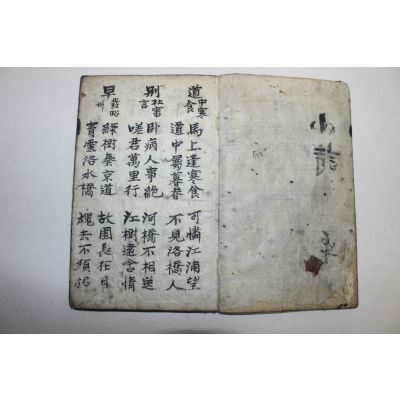 小詩
道中寒食 馬上逢寒食 可憐江浦望
道中屬暮春 不見洛橋人
別杜審言 臥病人事絶 河橋不相送
嗟君萬里行 江樹遠含情
早發韶州 綠樹秦京道 故園長在目
靑雲洛水橋 魂去不須招